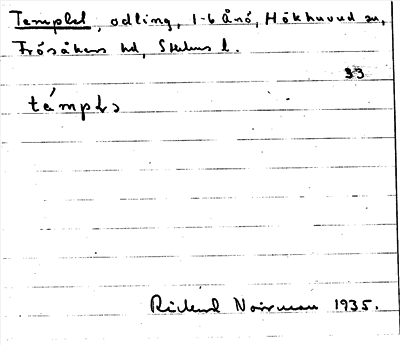 Templet, odling, 1-6 Ånö, Hökhuvud sn,
Frösåkers hd, Sthlms l.
33
témplə
Rickard Norrman 1935.